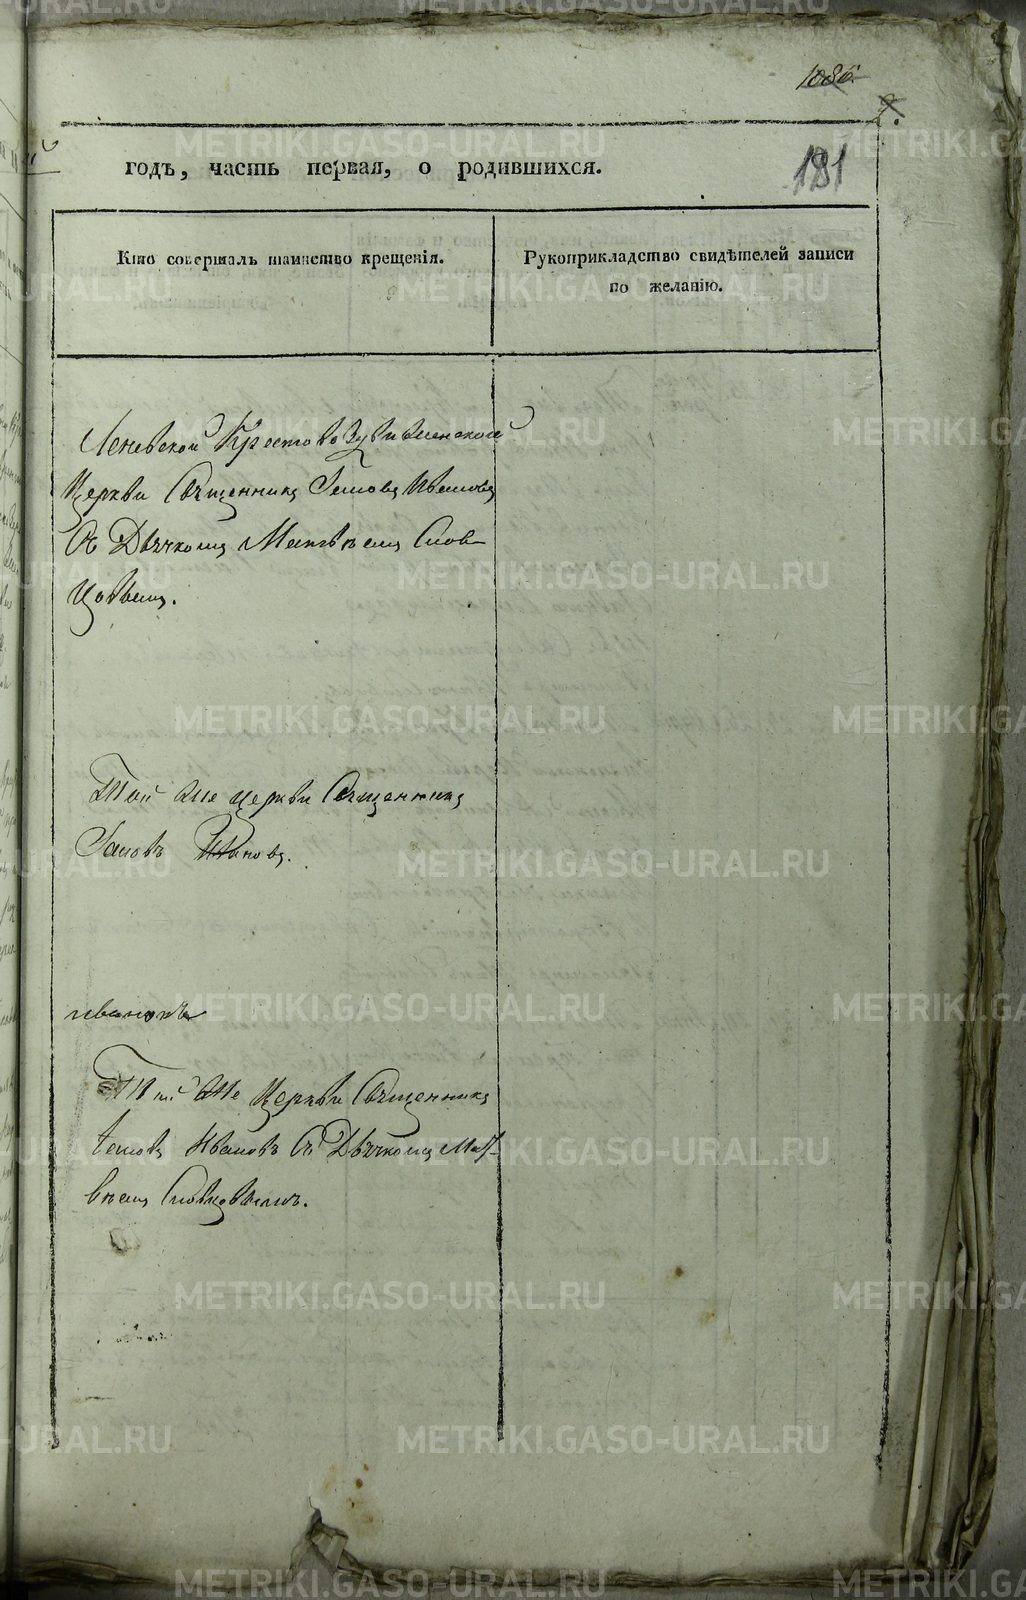 1086
2.
годъ, часть первая, о родившихся.
181
Кто совершалъ таинство крещенія.
Рукоприкладство свидѣтелей записи
по желанію.
Леневской Крестовоздвиженской
Церкви Священникъ Іаковъ Ивановъ
Съ Дьячкомъ Матвѣемъ Слов-
цовымъ.
Той же церкви Священникъ
Іаковъ Ивановъ.
Той же Церкви Священникъ
Іаковъ Ивановъ Съ Дьячкомъ Мат-
вѣемъ Словцовымъ.
METRIKI.GASO-URAL.RU